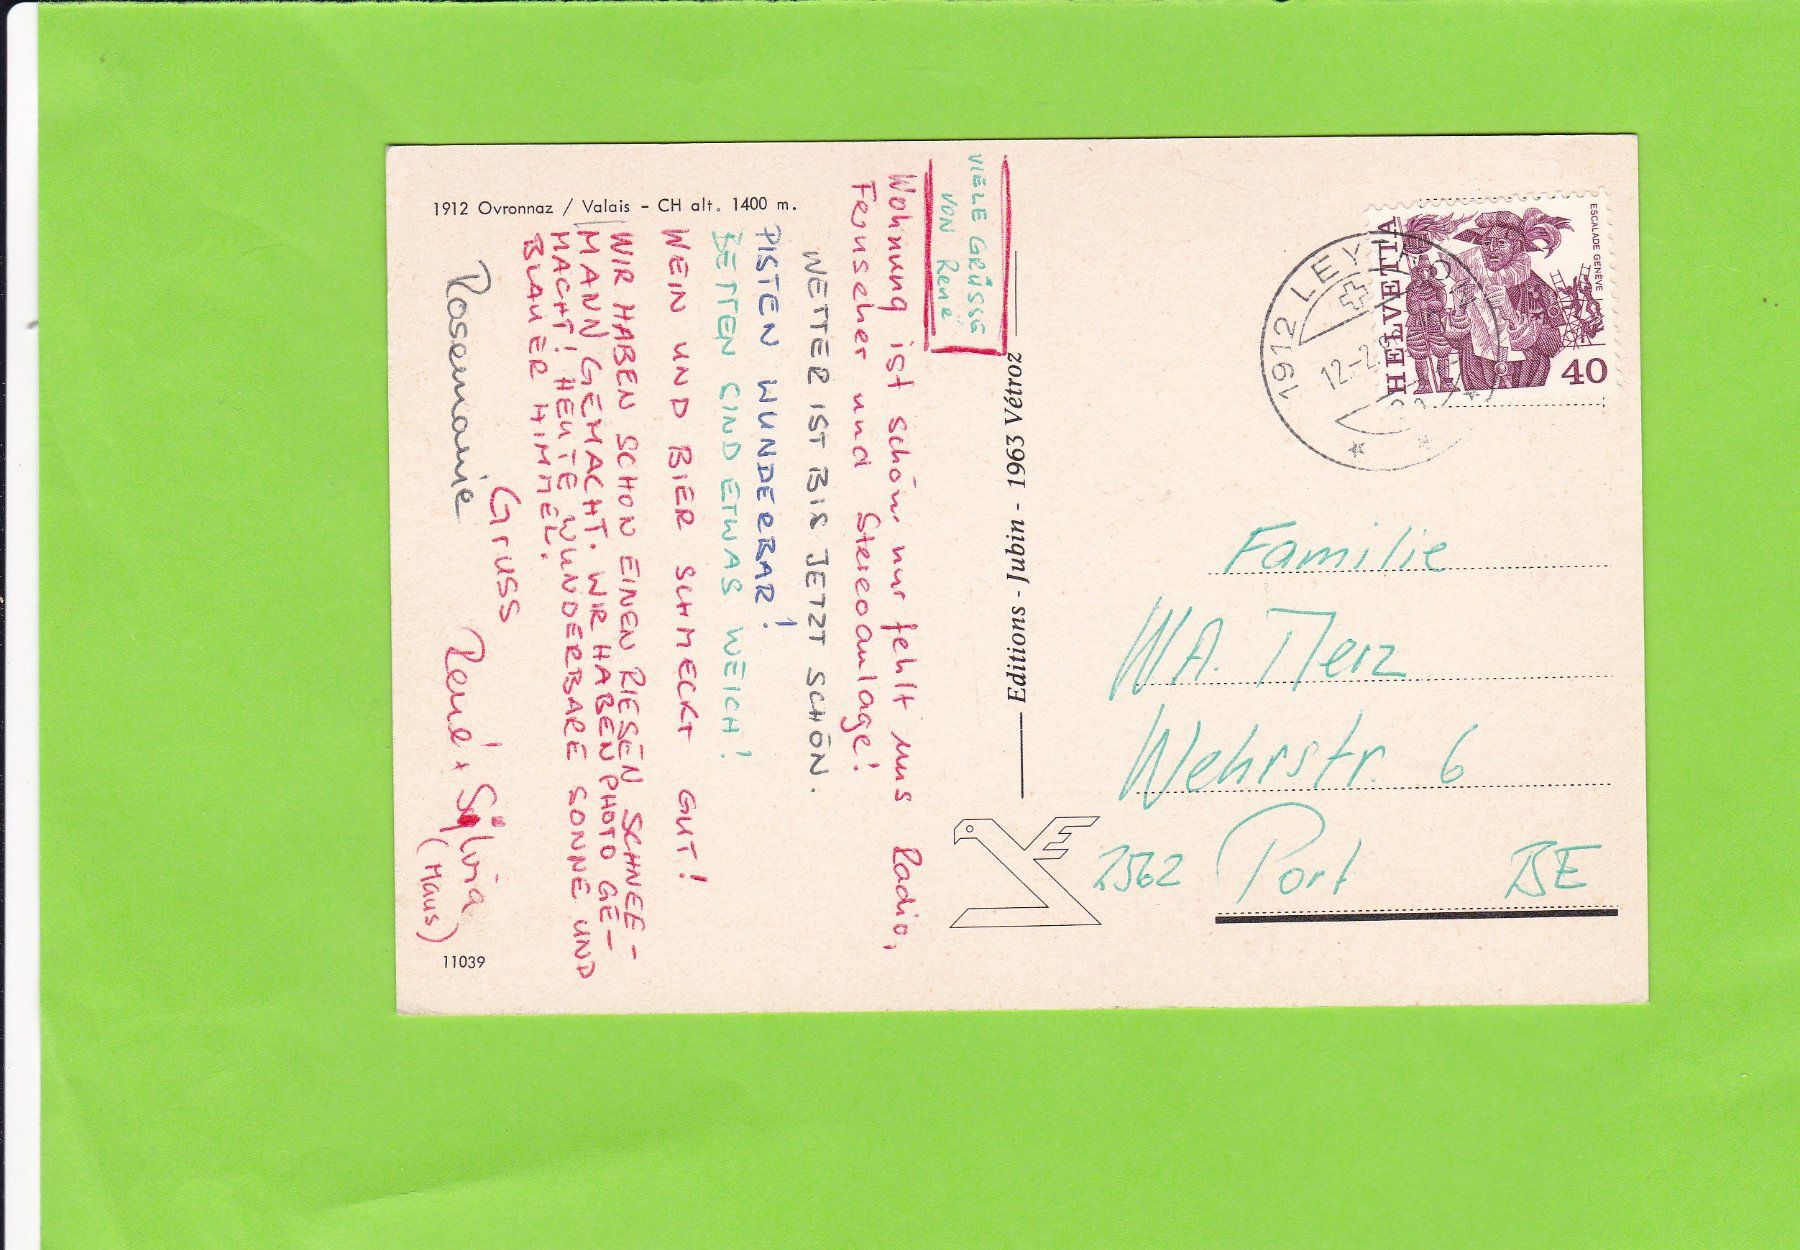 1912 Ovronnaz / Valais - CH alt. 1400 m.
VIELE GRÜSSE
VON René
Wohnung ist schön nur fehlt uns Radio,
Fernseher und Stereoanlage!
WETTER IST BIS JETZT SCHÖN.
PISTEN WUNDERBAR!
BETTEN SIND ETWAS WEICH!
WEIN UND BIER SCHMECKT GUT!
WIR HABEN SCHON EINEN RIESEN SCHNEE-
MANN GEMACHT. WIR HABEN PHOTO GE-
MACHT! HEUTE WUNDERBARE SONNE UND
BLAUER HIMMEL.
Gruss
Rosemarie René + Sylvia
(Maus)
11039
Editions - Jubin - 1963 Vétroz
ESCALADE GENÈVE
HELVETIA
40
1912
12-2
Familie
WA. Merz
Wehrstr. 6
2562 Port BE